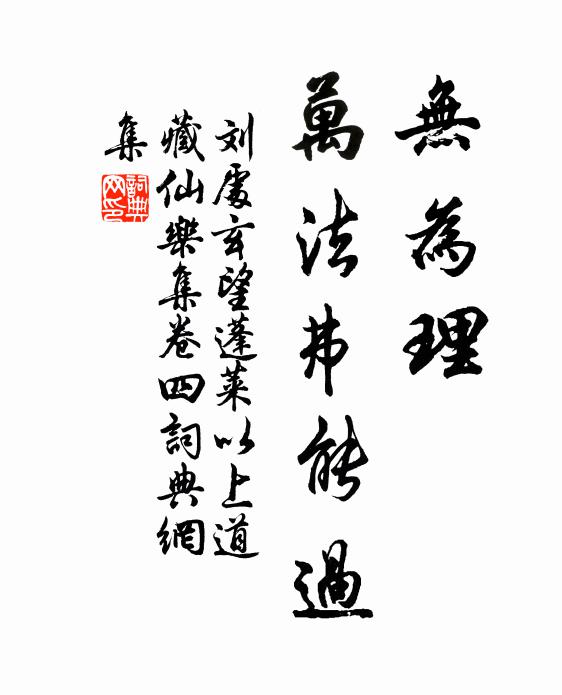 無為理
萬法弗能過
刘處玄望蓬莱以上道
藏仙樂集卷四詞典網
集
詞典
网印